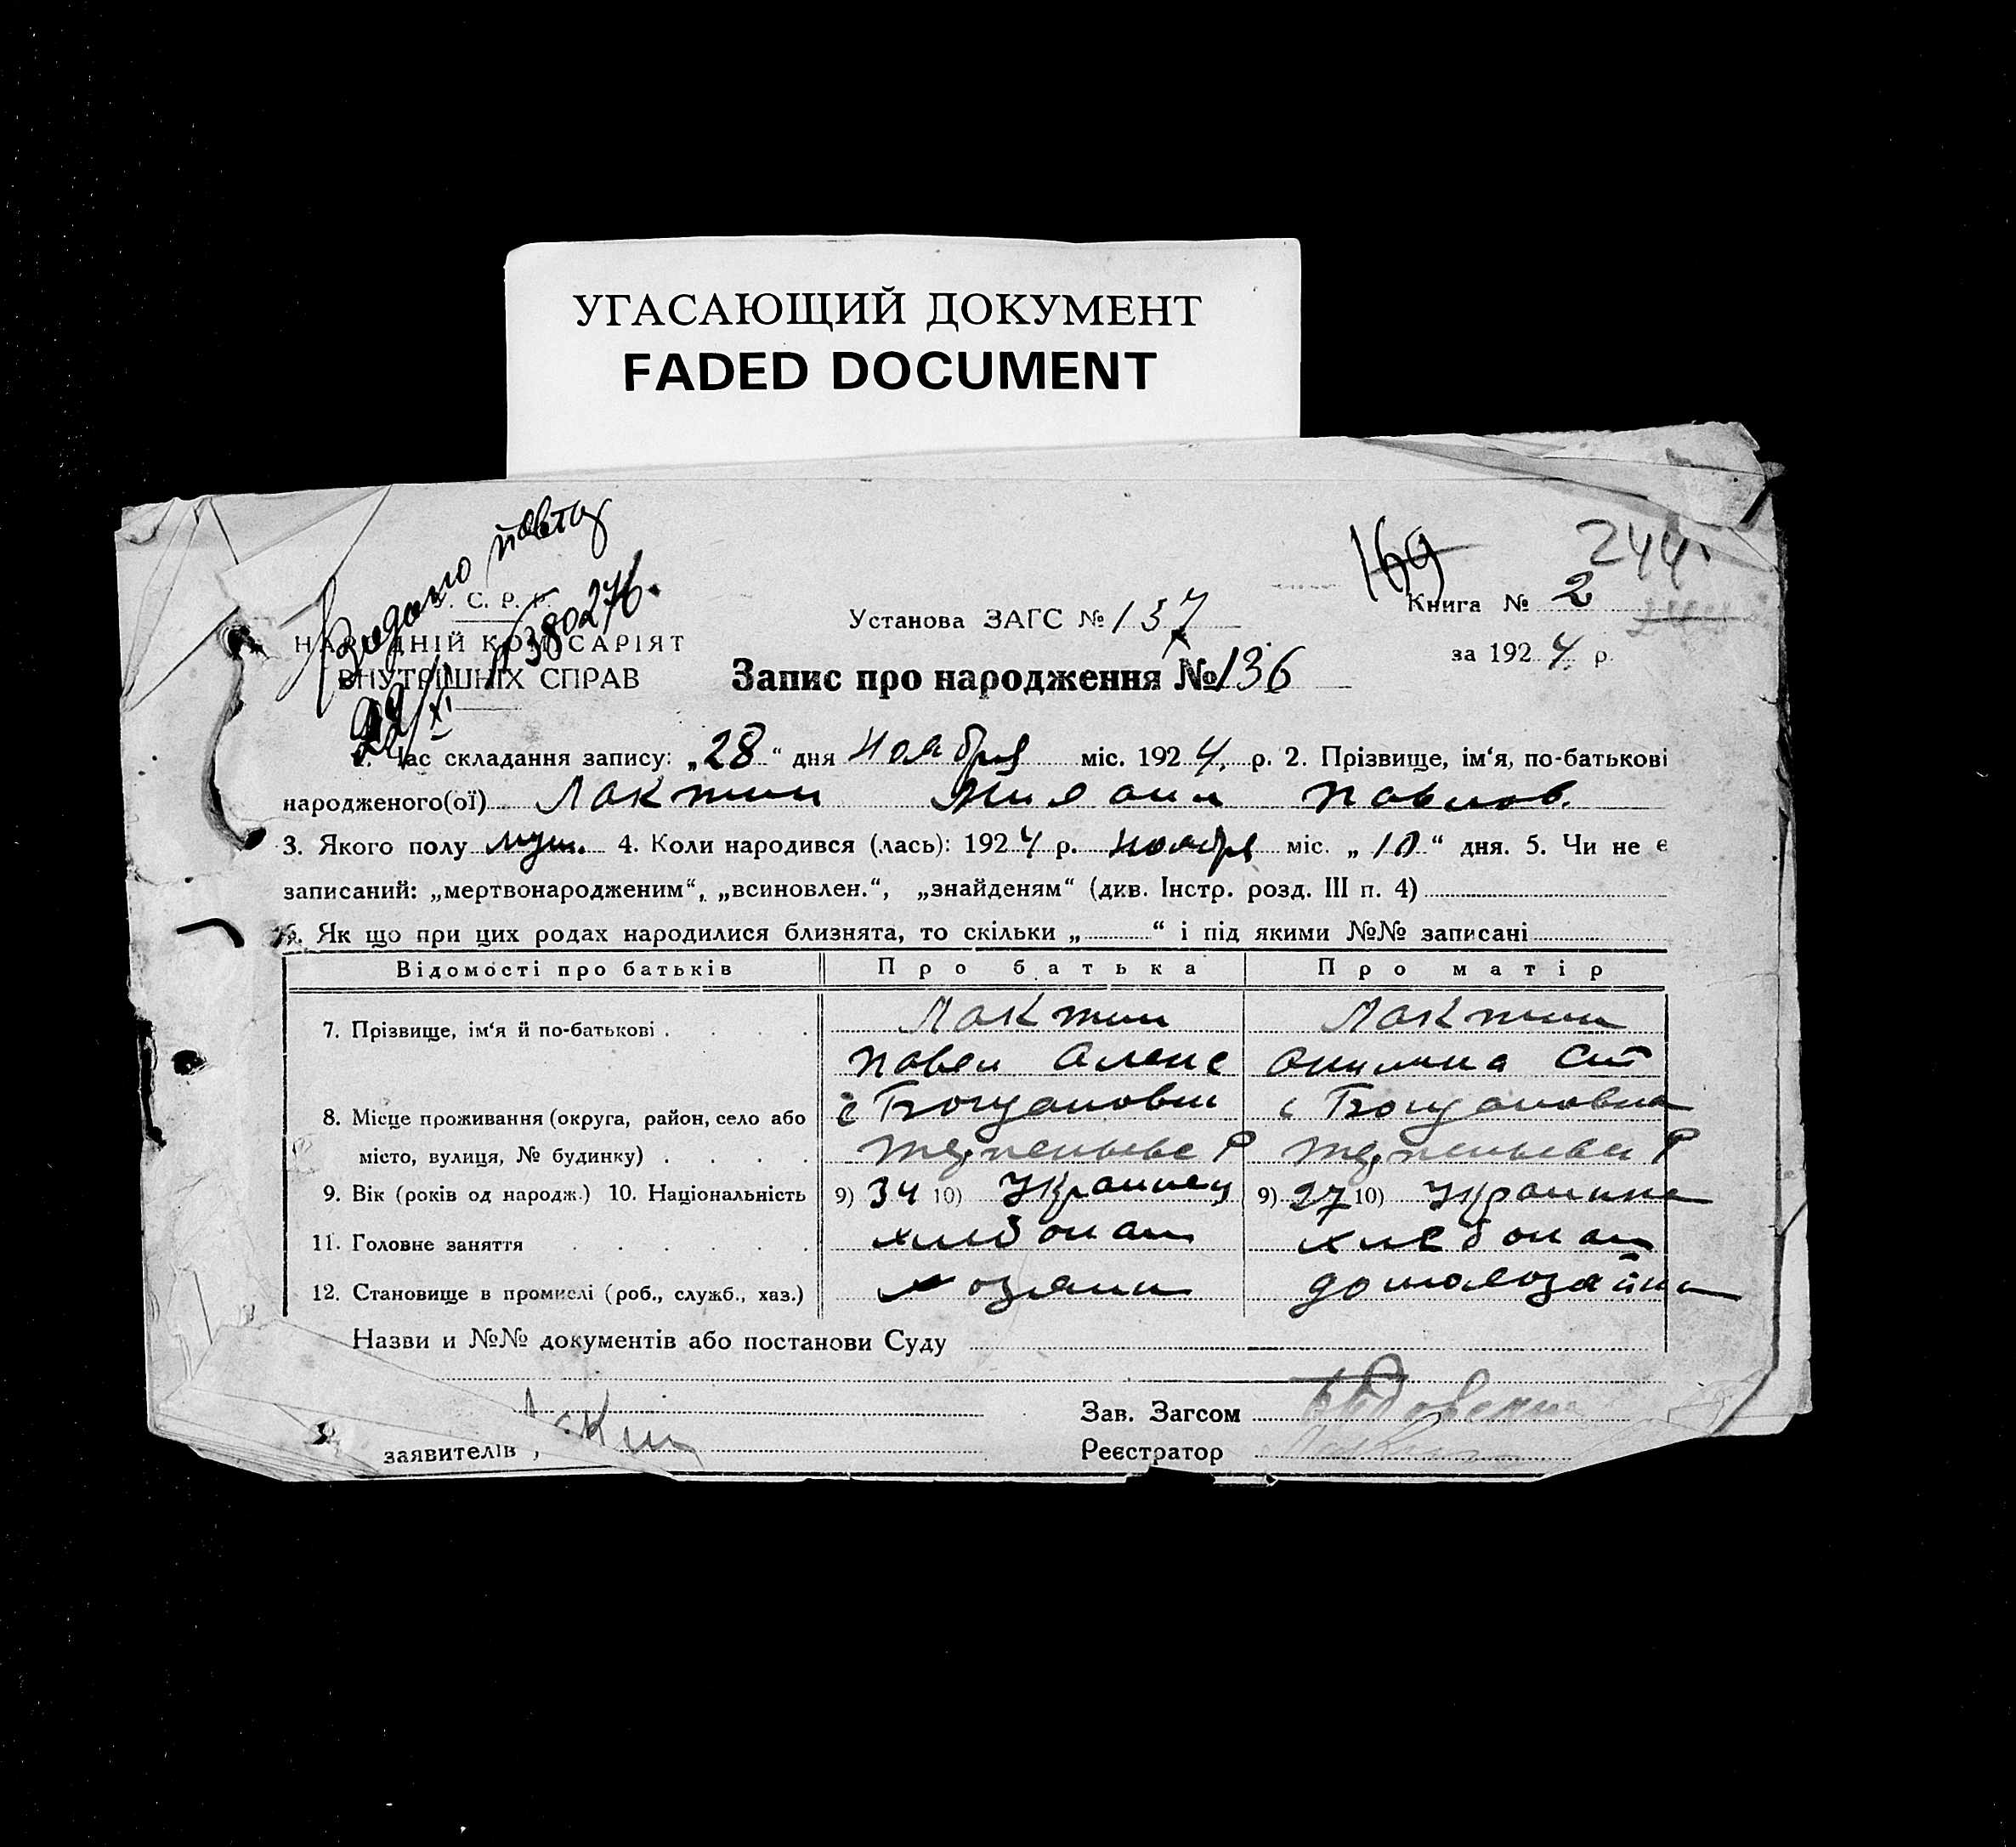 УГАСАЮЩИЙ ДОКУМЕНТ
FADED DOCUMENT
Видано повто
№ 380276.
22/XI
169
244
У. С. Р. Р.
НАРОДНІЙ КОМІСАРІЯТ
ВНУТРІШНІХ СПРАВ
Установа ЗАГС № 137
Книга № 2
за 1924 р.
Запис про народження № 136
1. Час складання запису: „28“ дня Ноября міс. 1924 р. 2. Прізвище, ім‘я, по-батькові
народженого(ої) Лактин Михаил Павлов.
3. Якого полу муж. 4. Коли народився (лась): 1924 р. ноября міс. „10“ дня. 5. Чи не є
записаний: „мертвонародженим“, „всиновлен.“, „знайденям“ (дкв. Інстр. розд. III п. 4)
6. Як що при цих родах народилися близнята, то скільки „ “ і під якими №№ записані
Відомості про батьків Про батька Про матір
7. Прізвище, ім‘я й по-батькові Лактин Лактин
Павел Алекс
с Богдановки с Богдановка
8. Місце проживання (округа, район, село або
місто, вулиця, № будинку)
9. Вік (років од народж.) 10. Національність 9) 34 10) Украинец 9) 27 10) Украинка
11. Головне заняття хлебопаш хлебопаш
12. Становище в промислі (роб., служб., хаз.) хозяин домохозяйка
Назви и №№ документів або постанови Суду
Зав. Загсом
заявителів
Реєстратор